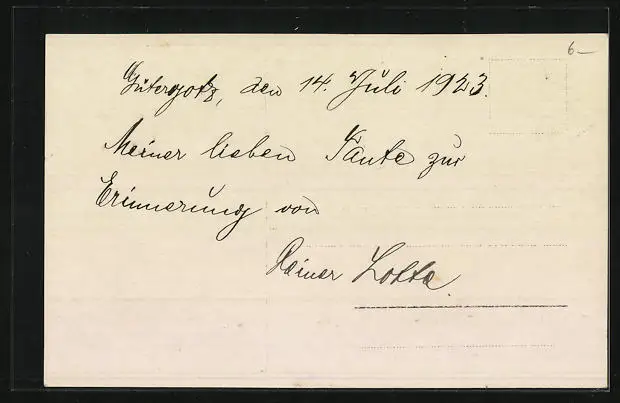 6-
Gütergotz, den 14. Juli 1923.
Meiner lieben Tante zur
Erinnerung von
Deiner Lotte.